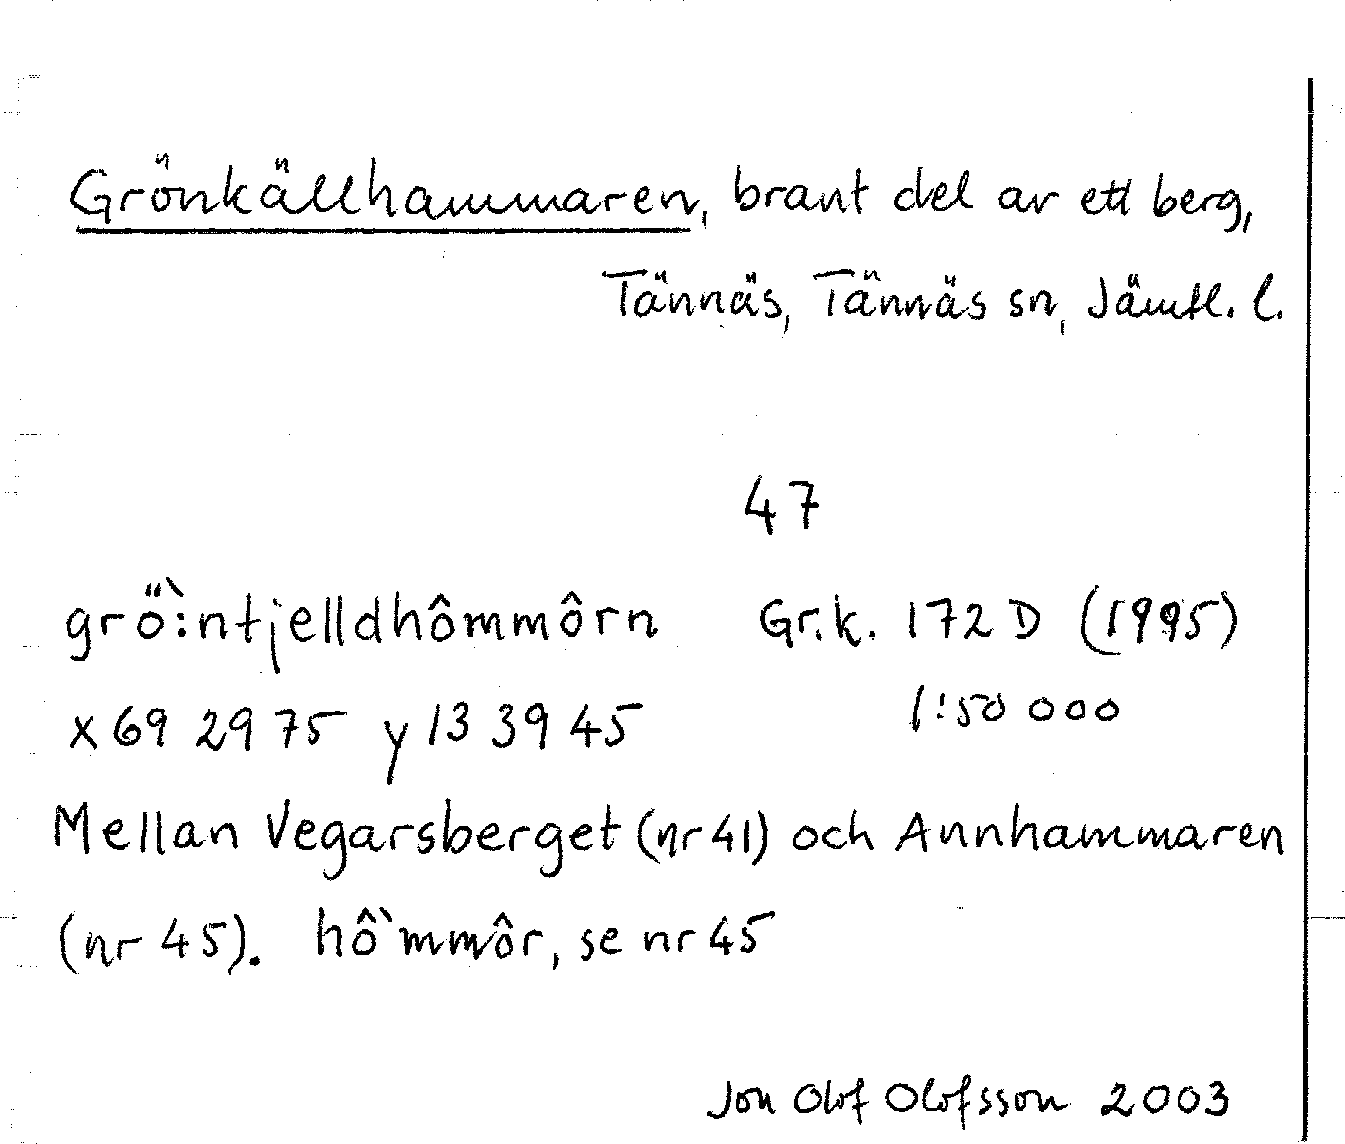 Grönkällhammaren, brant del av ett berg,
Tännäs, Tännäs sn, Jämtl. l.
47
grö̀:ntjelldhômmôrn Gr.k. 172 D (1995)
x 69 29 75 y 13 39 45 1:50 000
Mellan Vegarsberget (nr 41) och Annhammaren
(nr 45). hô`mmôr, se nr 45
Jon Olof Olofsson 2003